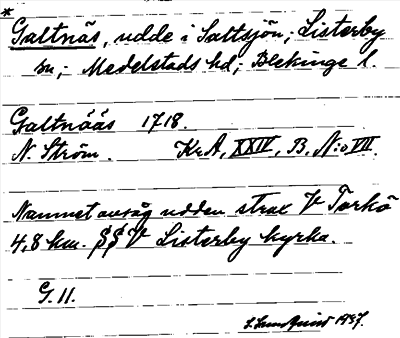 *
Galtnäs, udde i Saltsjön; Listerby
sn; Medelstads hd; Blekinge l.
Galtnääs 1718.
N. Ström. Kr.A, XXIV, B, N:o VII.
Namnet avsåg udden strax V Torkö
4,8 km. SSV Listerby kyrka.
G. 11.
S. Lundquist 1937.